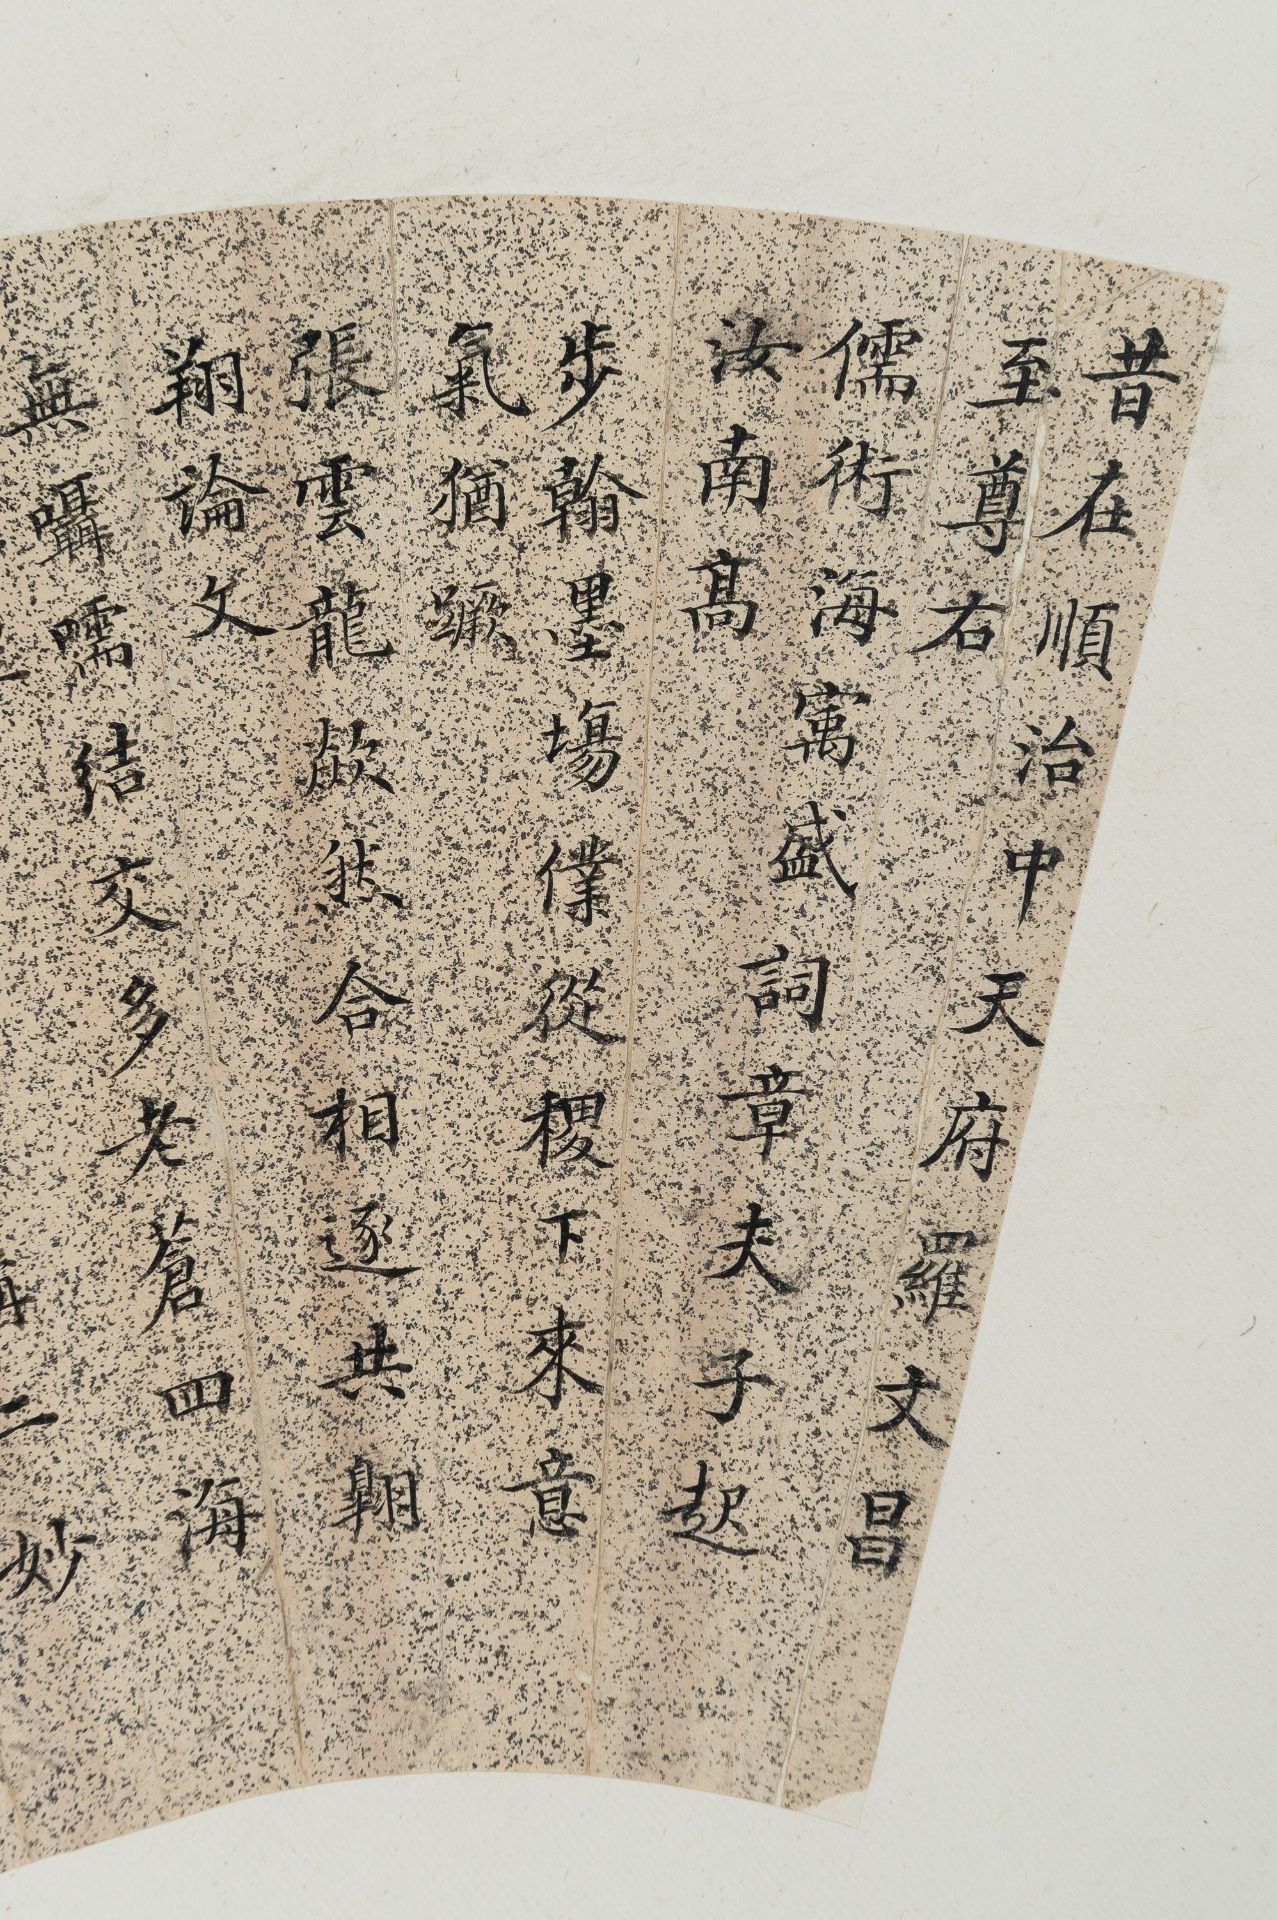 昔在順治中天府羅文昌
至尊右
儒術海寓盛詞章夫子起
汝南高
步翰墨場僕從稷下來意
氣猶蹶
張雲龍歘然合相逐共翱
翔論文
無囁嚅結交多老蒼四海
二妙